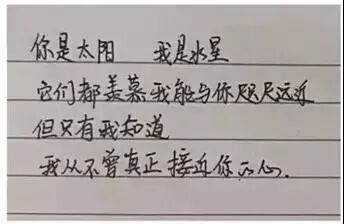 你是太阳 我是水星
它们都羡慕我能与你咫尺远近
但只有我知道
我从不曾真正接近你的心.